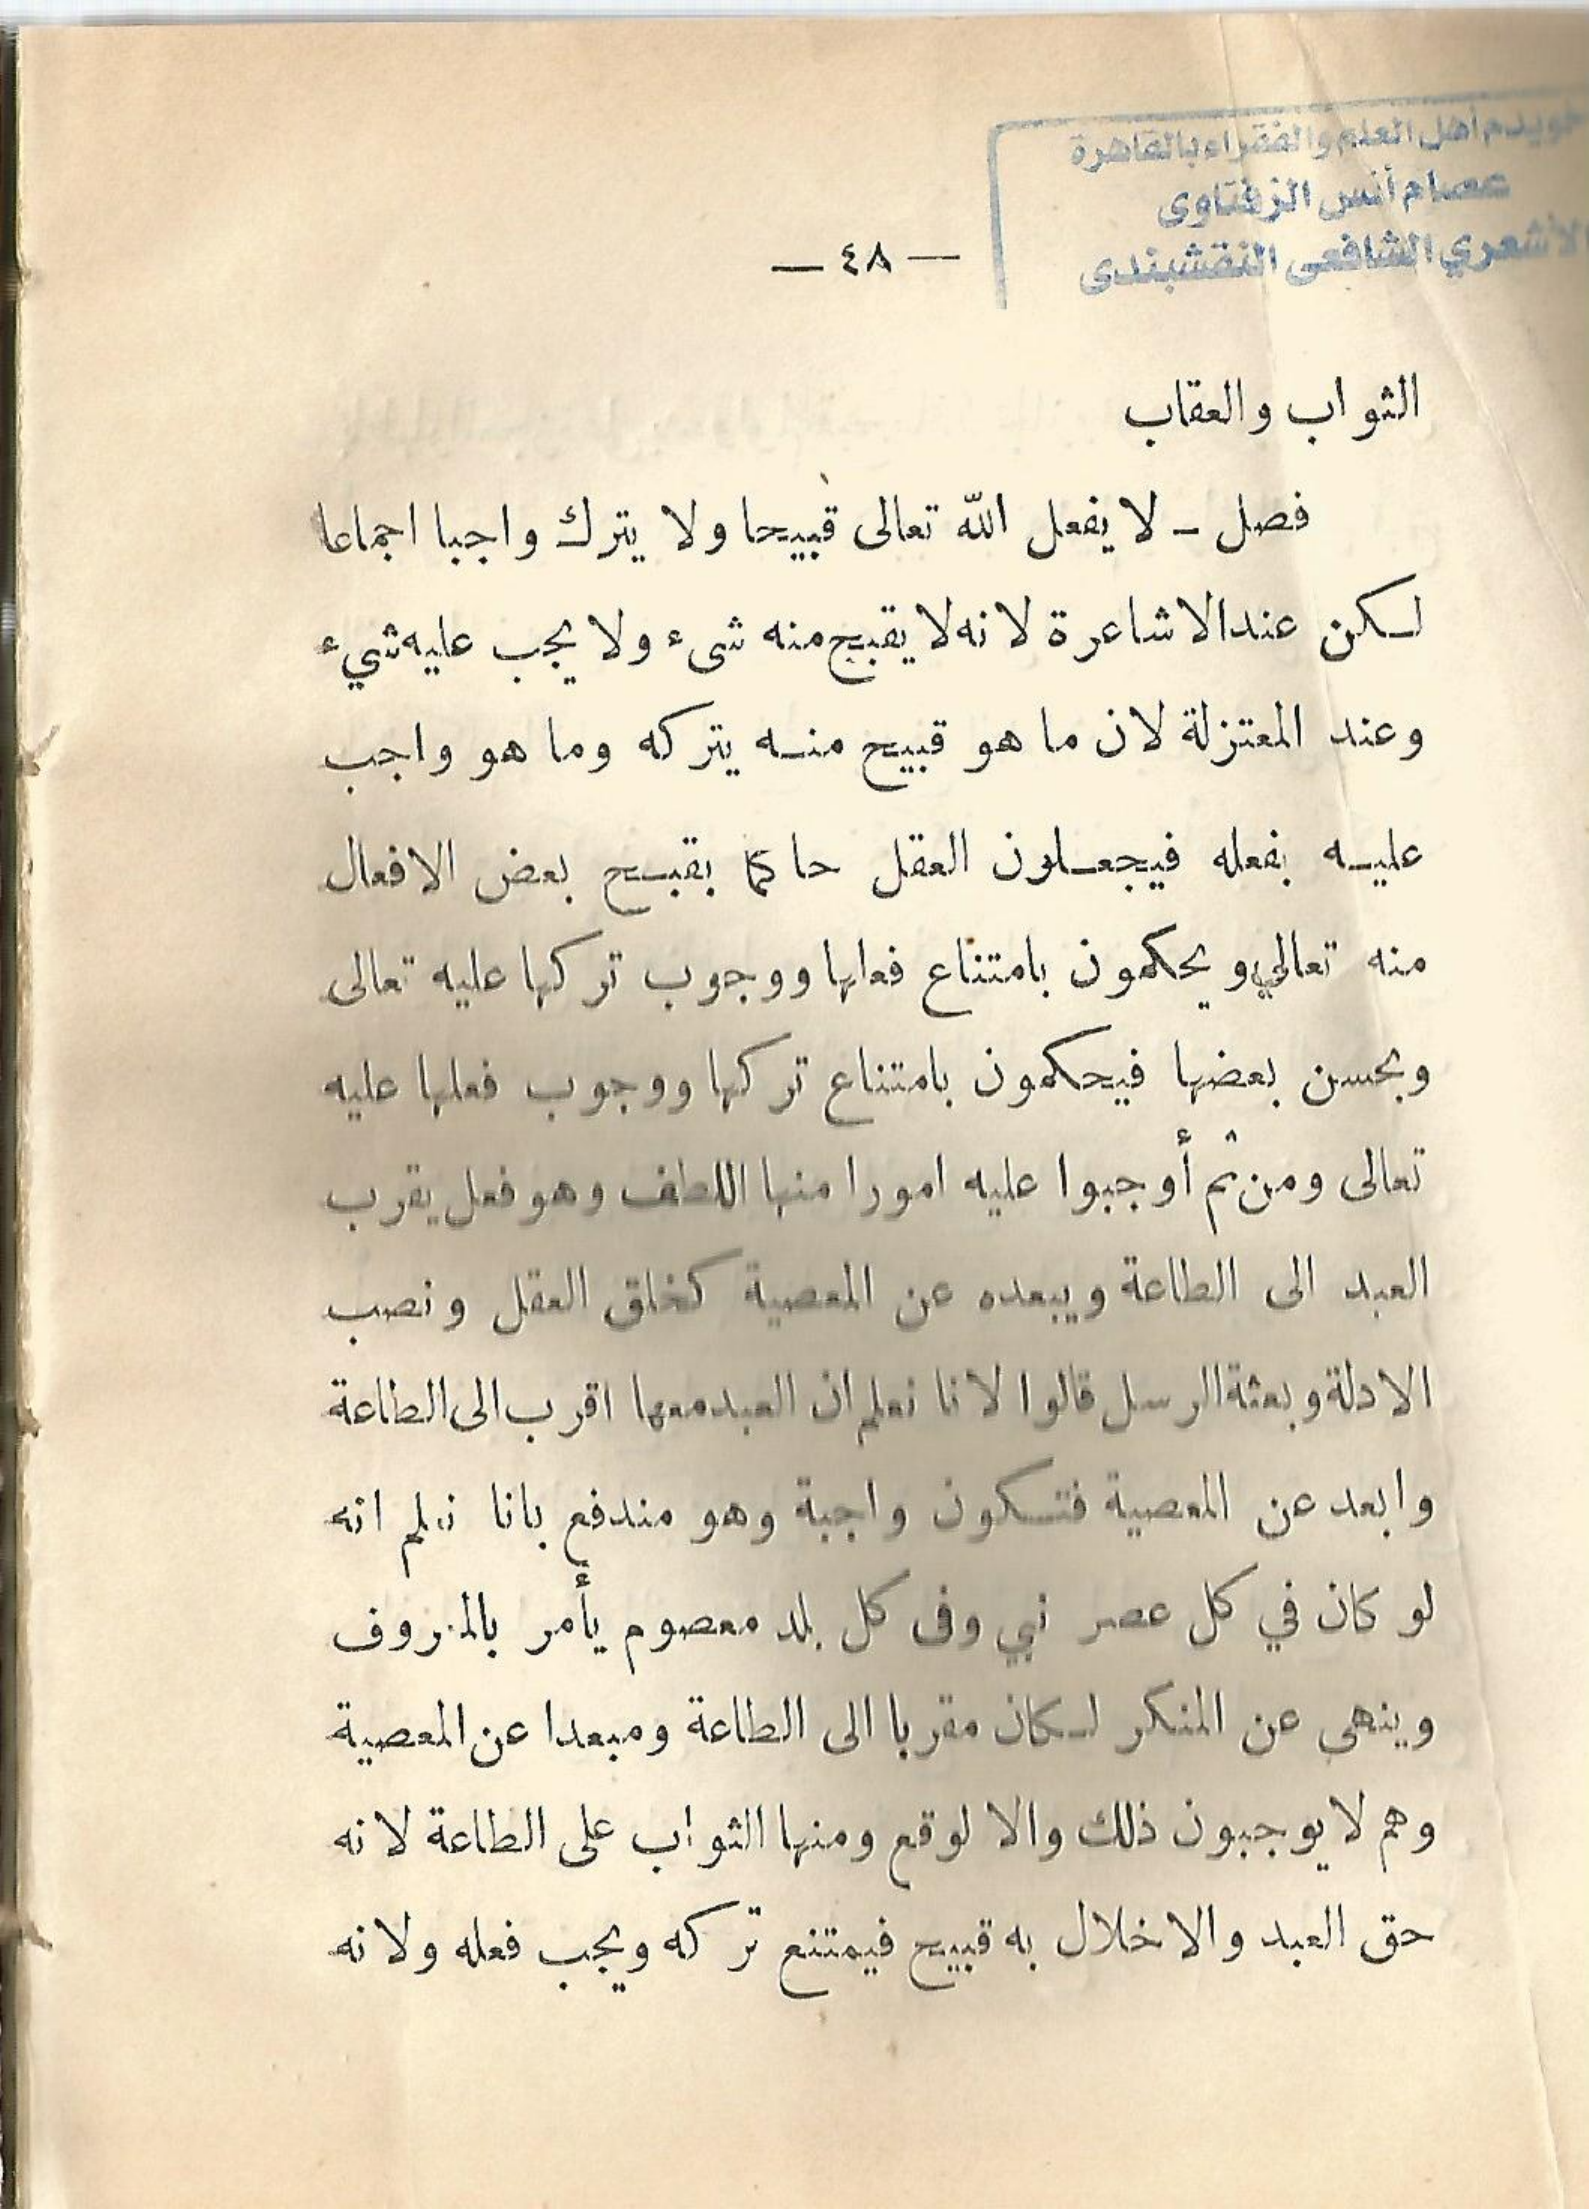 خويدم أهل العلم والفقراء بالقاهرة
عصام أنس الزفتاوى
الأشعري الشافعى النقشبندى
— ٤٨ —
الثواب والعقاب
فصل – لا يفعل الله تعالى قبيحا ولا يترك واجبا اجماعا
لكن عند الاشاعرة لانه لا يقبح منه شىء ولا يجب عليه شيء
وعند المعتزلة لان ما هو قبيح منه يتركه وما هو واجب
عليه بفعله فيجعلون العقل حاكما بقبح بعض الافعال
منه تعالى ويحكمون بامتناع فعلها ووجوب تركها عليه تعالى
وبحسن بعضها فيحكمون بامتناع تركها ووجوب فعلها عليه
تعالى ومن ثم أوجبوا عليه امورا منها اللطف وهو فعل يقرب
العبد الى الطاعة ويبعده عن المعصية كخلق العقل ونصب
الادلة وبعثة الرسل قالوا لانا نعلم ان العبد معها اقرب الى الطاعة
وابعد عن المعصية فتكون واجبة وهو مندفع بانا نعلم انه
لو كان في كل عصر نبي وفى كل بلد معصوم يأمر بالمعروف
وينهى عن المنكر لكان مقربا الى الطاعة ومبعدا عن المعصية
وهم لا يوجبون ذلك والا لوقع ومنها الثواب على الطاعة لانه
حق العبد والاخلال به قبيح فيمتنع تركه ويجب فعله ولانه